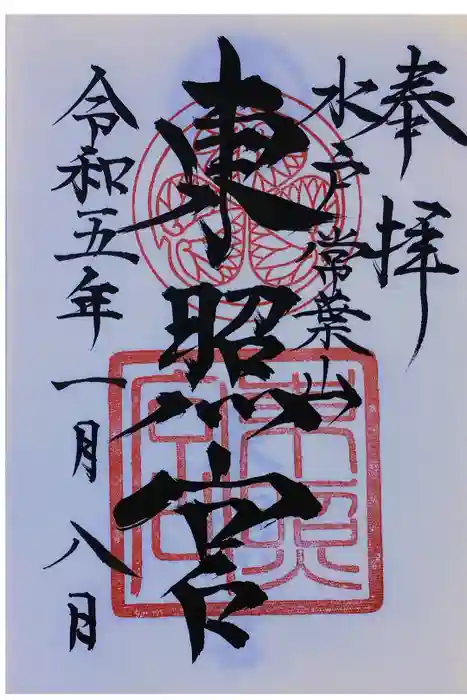 奉拝
水戸常葉山
東照宮
令和五年一月八月